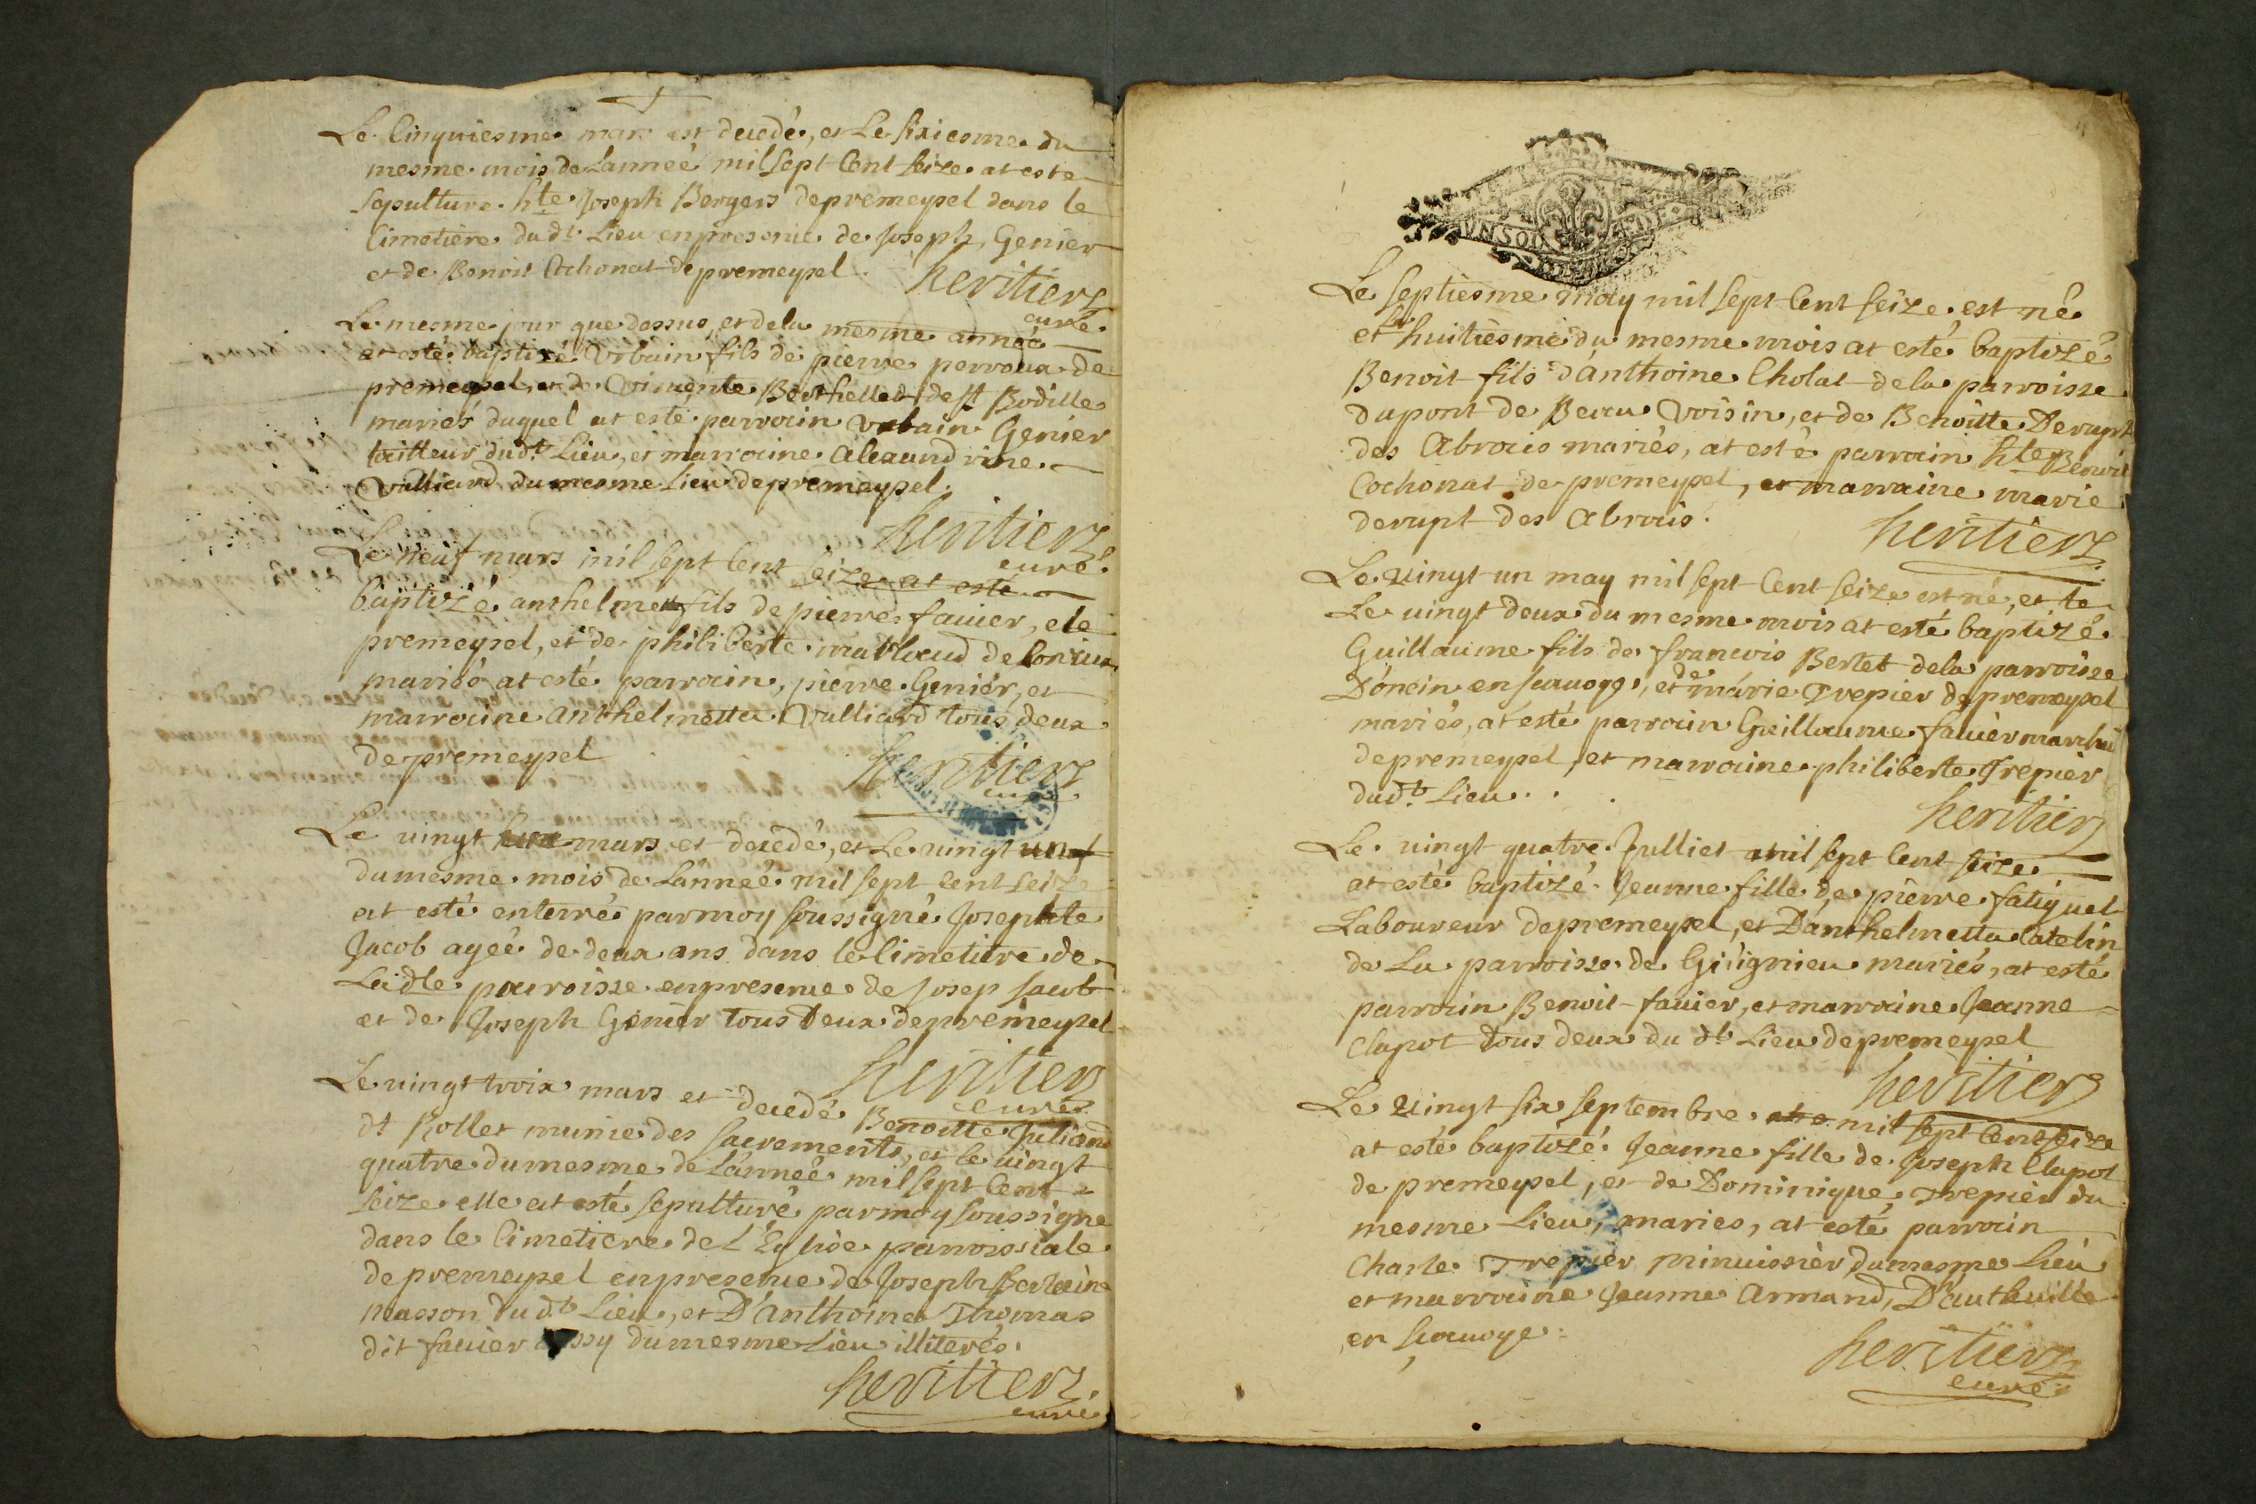 Le Cinquiesme mars est decedé, et Le sixiesme du
mesme mois de Lanneé mil sept Cent seize at este
sepulture hte Joseph Bergers de premeysel dans le
Cimetière dudt Lieu en presence de Joseph Genier
et de Benoit Cochonat de premeysel
heritierz
curé
Le mesme jour que dessus, et dela mesme année
at esté baptizé Urbain fils de pierre perroux de
premeysel, et de Berthellet de st Bodille
mariés duquel at esté parrain Urbain Genier
tailleur dudt Lieu, et marraine Alexandrine
Vulliard du mesme Lieu de premeysel.
heritierz
curé.
Le neuf mars mil sept Cent seize at esté
baptizé anthelme fils de pierre favier, de
premeysel, et de philiberte de
mariés at esté parrain, pierre Genier, et
marraine anthelmetta Vulliard tous deux
de premeysel
heritierz
curé
Le vingt mars et decedé, et Le vingt
du mesme mois de Lánneé mil sept Cent seize
at esté enterré par moy soussigné Josephte
Jacob ageé de deux ans dans le Cimetiere de
Ladte parroisse en presence de Josep Jacob
et de Joseph Genier tous Deux de premeysel
heritierz
curé
Le vingt trois mars et decedé Benoitte Juliand
dt Rollet munie des sacrements, et le vingt
quatre du mesme de Lánneé mil sept Cent
seize elle at esté sepulturé par moy soussigne
dans le Cimetiere de L'Eglise parroissiale
de premeysel en presence de Joseph
masson du dt Lieu, et D'anthoine Thomas
dit favier du mesme Lieu illiterés.
heritierz.
curé
UN SOL
Le septiesme may mil sept Cent seize est né
et le huitiesme du mesme mois at esté baptizé
Benoit fils d'ánthoine Cholat dela parroisse
du pont de Beau Voisin, et de Benoitte Derupt
des Abrais mariés, at esté parrain hte Benoit
Cochonat de premeysel, et marraine marie
derupt des Abrais.
heritierz
Le vingt un may mil sept Cent seize est né, et le
Le vingt deux du mesme mois at esté baptizé
Guillaume fils de francois Bertet dela parroisse
D'oncin en scauoye, et de márie Trepier de premeysel
mariés, at esté parrain Guillaume favier
de premeysel, et marraine philiberte Trepier
dudt Lieu..
heritierz
Le vingt quatre Julliet mil sept Cent seize
at esté baptizé Jeanne fille de pierre fatiguet
Laboureur de premeysel, et D'anthelmetta Catelin
de La parroisse de Gisignieu mariés, at esté
parrain Benoit favier, et marraine Jeanne
Clapot tous deux du dt Lieu de premeysel
heritierz
Le vingt six septembre mil sept Cent seize
at esté baptizé Jeanne fille de Joseph Clapot
de premeysel, et de Dominique Trepier du
mesme Lieu, maries, at esté parrain
Charle Trepier minuissier du mesme Lieu
et marraine Jeanne Armand,
en scauoye
heritierz
curé